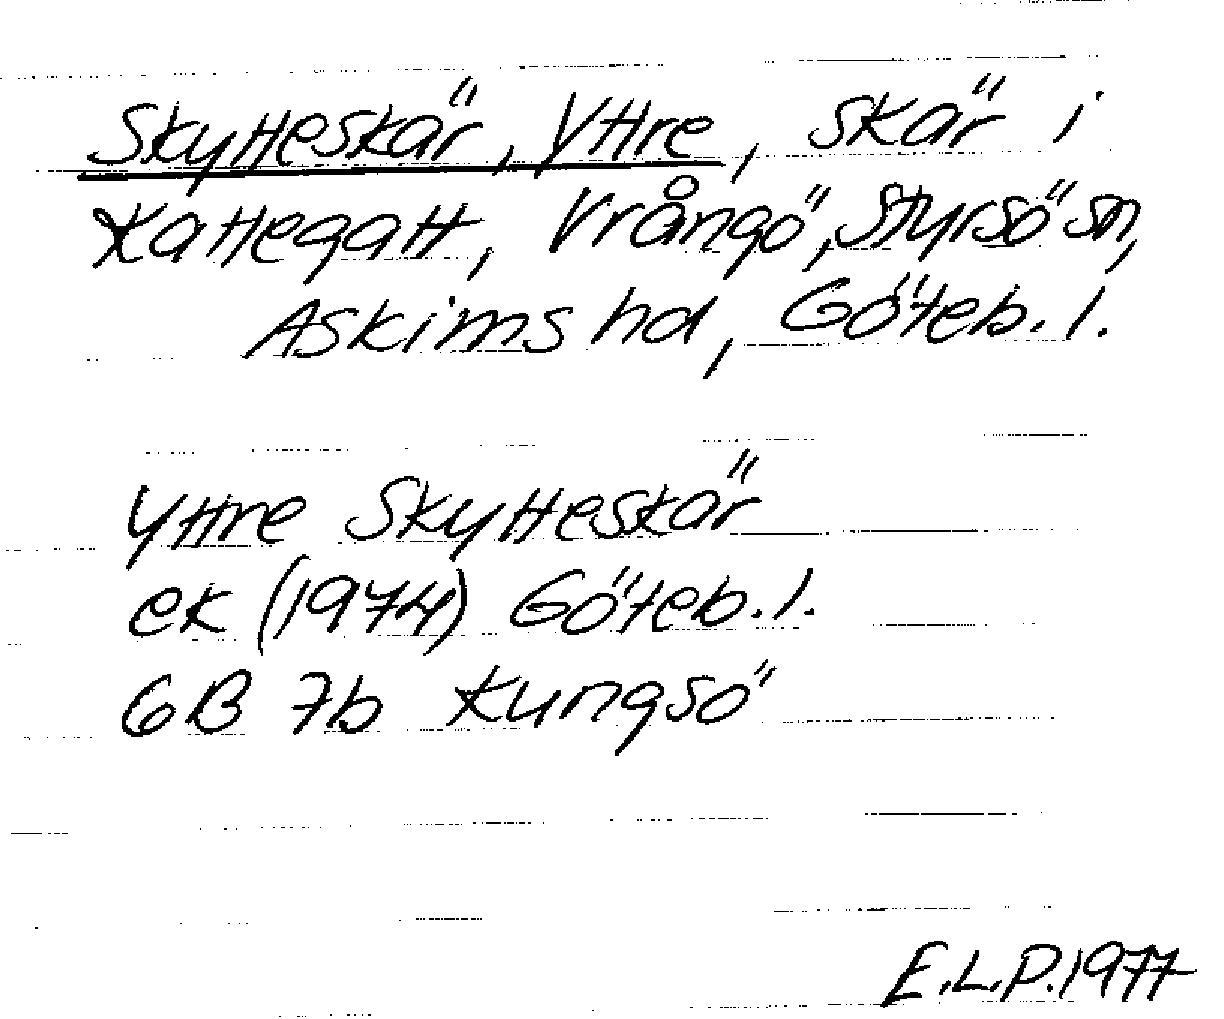 Skytteskär, Yttre, skär i
Kattegatt, Vrångö, Styrsö sn,
Askims hd, Göteb. l.
Yttre Skytteskär
ek (1974) Göteb. l.
6B 7b Kungsö
E.L.P. 1977